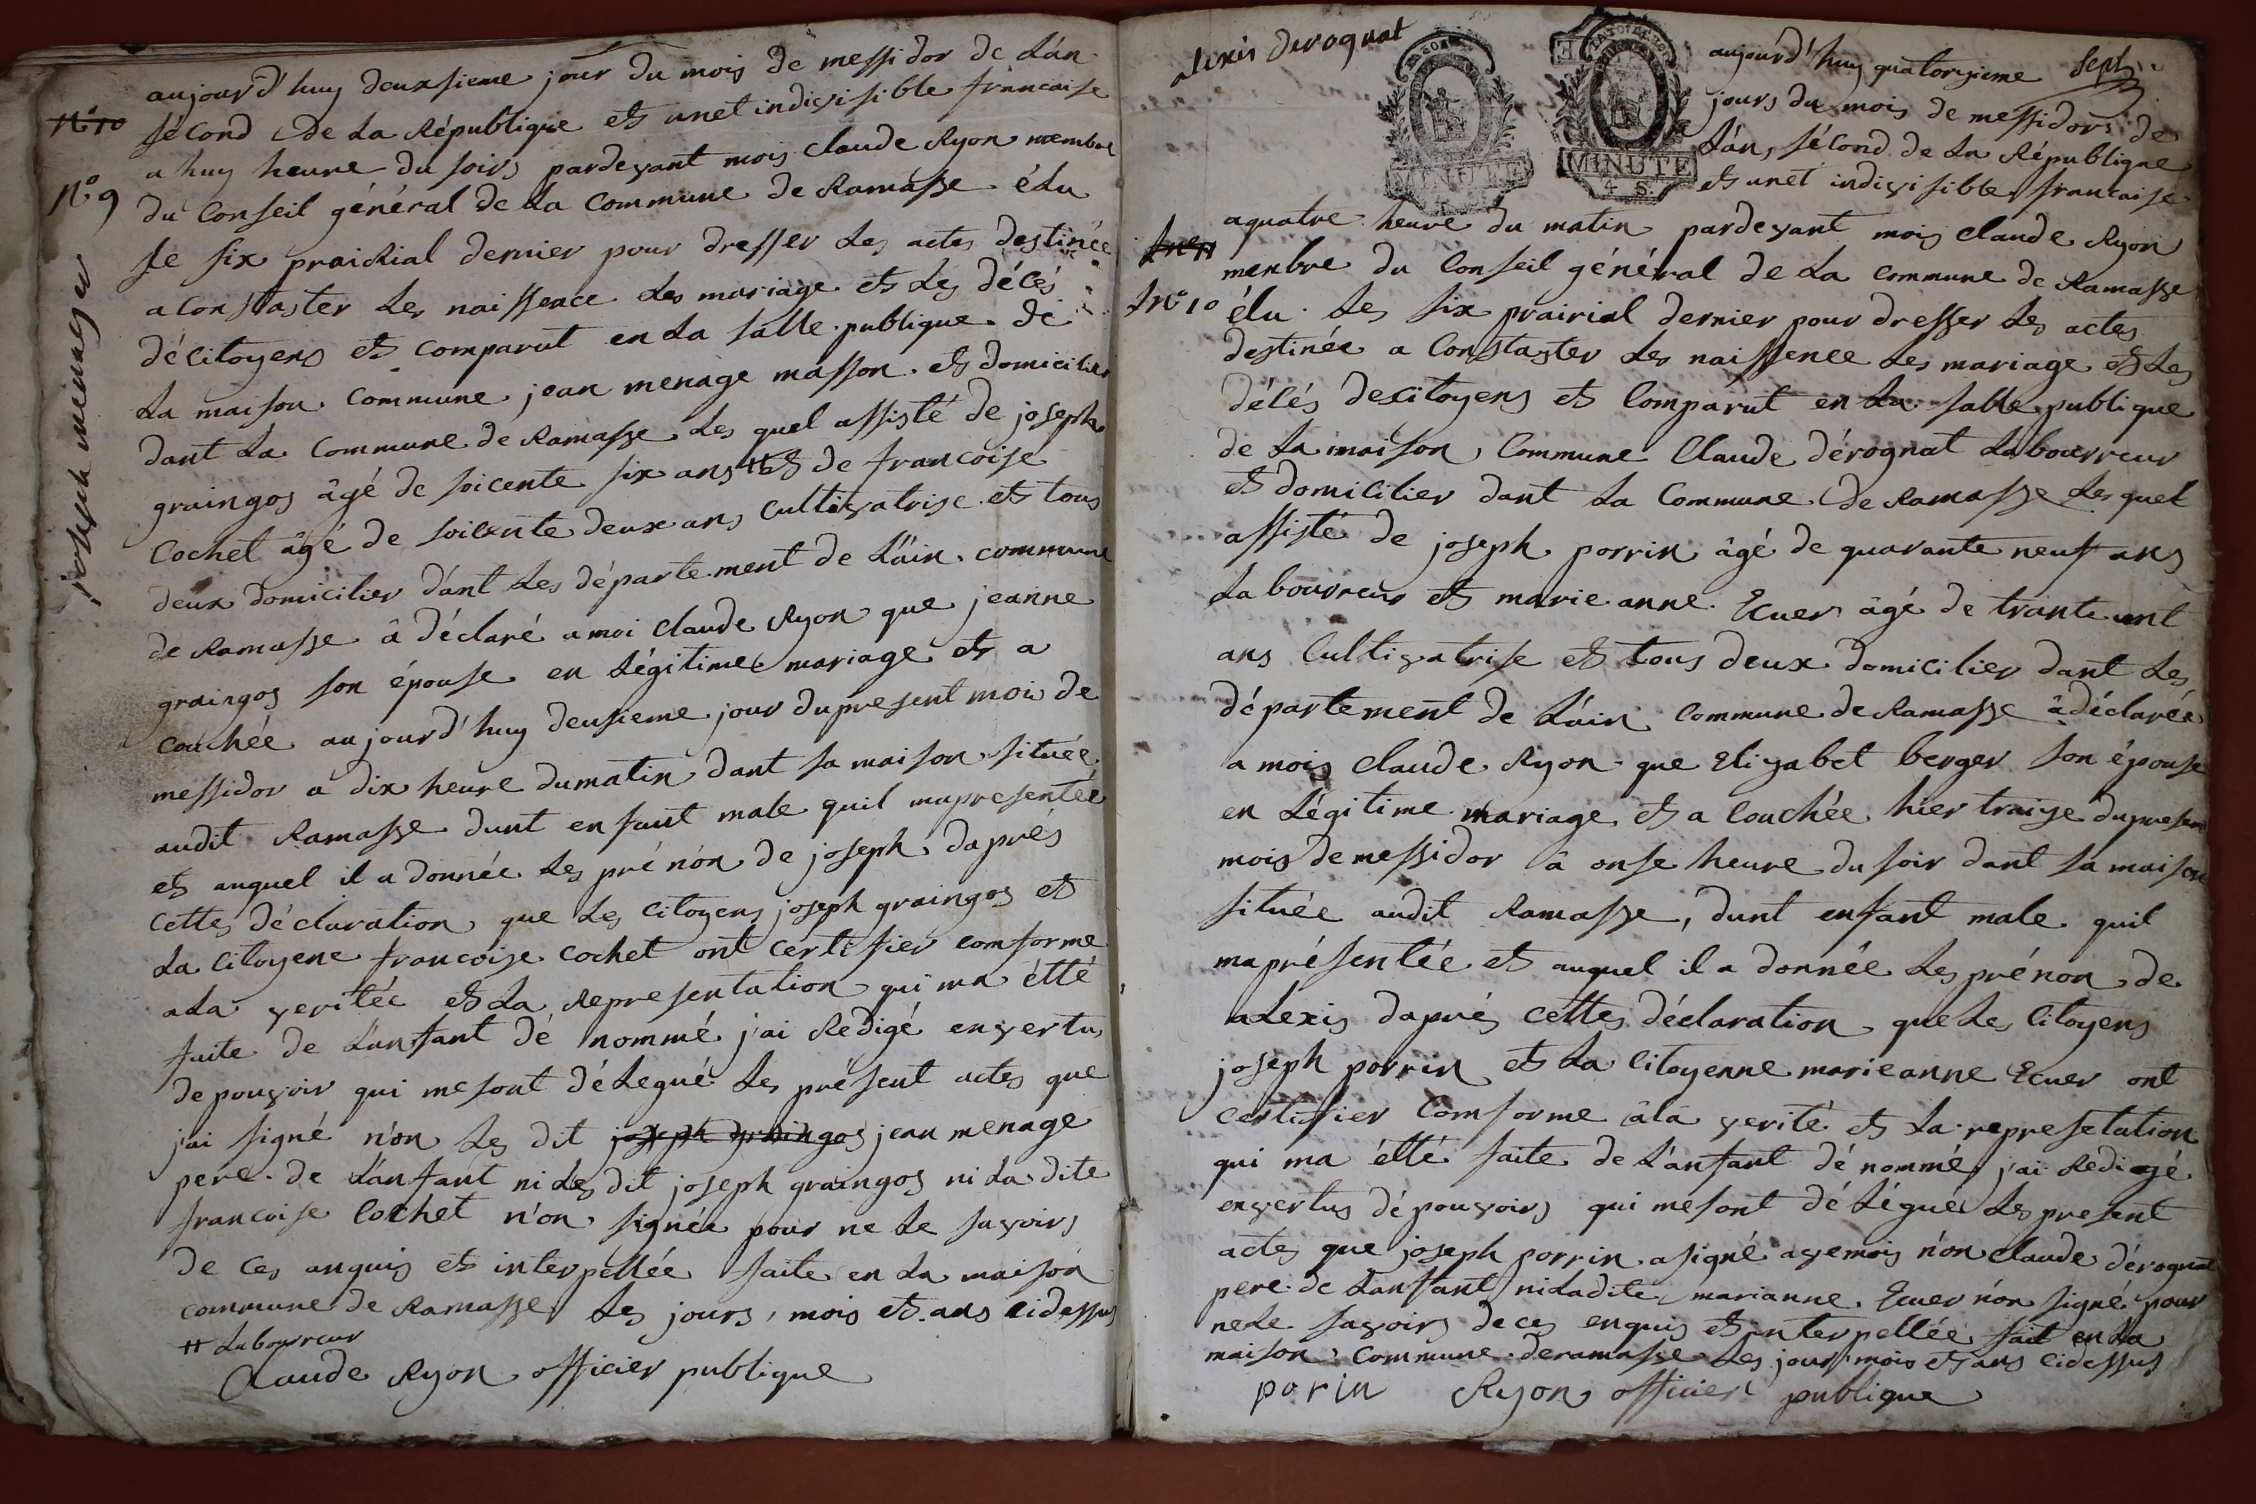 aujourd'huy deuxsieme jour du mois de messidor de L'an
N° 10
sécond de La République et unet indivisible francaise
a huy heure du soirs pardevant mois Claude Ryon membre
N° 9
du Conseil général de La Commune de Ramasse élu
Le six praidial dernier pour dresser Les actes destinée
a Constaster Les naissence Les mariage et Les décés
décitoyens et comparut en La salle publique de
La maison Commune jean menage masson et domicilier
dant La Commune de Ramasse Les quel assisté de joseph
graingos âgé de soicente six ans # et de francoise
Cochet âgé de soicente deux ans Cultivatrise et tous
deux domicilier dánt Les département de L'ain commune
de Ramasse â déclaré amoi Claude Ryon que jeanne
graingos son épouse en Légitime mariage et a
couchée aujourd'huy deusieme jour dupresent mois de
messidor a dix heure dumatin dant sa maison située
audit Ramasse dunt enfant male quil mapresentée
et auquel il a donnée Les prénón de joseph daprés
cettes déclaration que Les Citoyens joseph graingos et
La Citoyene francoise Cochet ont certifier comforme
aLa veritée et La representation qui ma étté
faite de L'anfant dé nommé j'ai Redigé envertus
depouvoir qui mesont déLegué Les présent actes que
j'ai signé n'on Les dit joseph graingos jean menage
pere de L'anfant ni Les dit joseph graingos ni La dite
francoise Cochet n'on signée pour ne Le savoirs
de ces anquis et interpellée faite en La maisón
commune de Ramasse Les jours, mois et ans cidessus
# Labourreur
Claude Ryon officier publique
joseph menager
alexis derognat
MINUTE
MINUTE
4 S.
aujourd'huy quatorzieme
jours du mois de messidors de
L'án, sécond de La République
et unet indivisible francaise
aquatre heure du matin pardevant mois Claude Ryon
membre du Conseil général de La Commune de Ramasse
N° 10
élu Les six prairial dernier pour dresser Les actes
destinée a Constaster Les naissence Les mariage et Les
décés decitoyens et Comparút en La salle publique
de La maison, Commune Claude dérognat Labourreur
et domicilier dant La Commune de Ramasse Les quel
assisté de joseph porrin âgé de quarante neuf ans
Labourreur et marie anne Ecuer âgé de trante unt
ans Cultivatrise et tous deux domicilier dant Les
département de L'áin Commune de Ramasse â déclarée
a mois Claude Ryon que Elizabet berger son épouse
en Légitime mariage et a Couchée hier traize dupresent
mois de messidor â onse heure du soir dant sa maison
située audit Ramasse, dunt enfant male quil
maprésentée et auquel il a donnée Les prénon de
aLexis daprés cettes déclaration que Les Citoyens
joseph porrin et La Citoyenne marieanne Ecuer ont
certifier Comforme âla verité et La represetation
qui ma étté faite de L'anfant dé nommé j'ai Rédigé
envertus dépouvoirs qui mesont déLégué Les present
actes que joseph porrin asigné avemois n'on Claude dérognat
pere de Lanfant ni ladite marianne Ecuer nón signé pour
neLe savoirs de ces enquis et interpellée fait en La
maison Commune deramasse Les jour mois et ans cidessus
porin Ryon officier publique